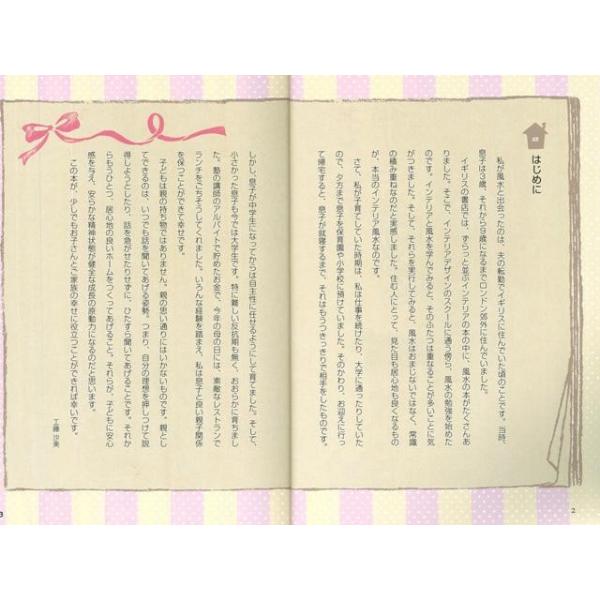 はじめに
私が風水と出会ったのは、夫の転勤でイギリスに住んでいた頃のことです。当時、
息子は3歳、それから9歳になるまでロンドン郊外に住んでいました。
イギリスの書店では、ずらーっと並ぶインテリアの本の中に、風水の本がたくさんあ
りました。そこで、インテリアデザインのスクールに通う傍ら、風水の勉強を始めた
のです。インテリアと風水を学んでみると、そのふたつは重なることが多いことに気
がつきました。そして、それらを実行してみると、風水はおまじないではなく、常識
の積み重ねなのだと実感しました。住む人にとって、見た目も居心地も良くなるもの
が、本当のインテリア風水なのです。
さて、私が子育てしていた時期は、私は仕事を続けたり、大学に通ったりしていた
ので、夕方まで息子を保育園や小学校に預けていました。そのかわり、お迎えに行っ
て帰宅すると、息子が就寝するまで、それはもうつきっきりで相手をしたものです。
しかし、息子が中学生になってからは自主性に任せるようにして育てました。そして、
小さかった息子も今では大学生です。特に難しい反抗期も無く、おおらかに育ちまし
た。塾の講師のアルバイトで貯めたお金で、今年の母の日には、素敵なレストランで
ランチをごちそうしてくれました。いろんな経験を踏まえ、私は息子と良い親子関係
を保つことができて幸せです。
子どもは親の持ち物ではありません。親の思い通りにはいかないものです。親とし
てできるのは、いつでも話を聞いてあげる姿勢、つまり、自分の理想を押しつけて説
得しようとしたり、話を急がせたりせずに、ひたすら聞いてあげることです。それか
らもうひとつ、居心地の良いホームをつくってあげること。それらが、子どもに安心
感を与え、安らかな精神状態が健全な成長の原動力になるのだと思います。
この本が、少しでもお子さんとご家族の幸せに役立つことができれば幸いです。
工藤 沙美
2
3